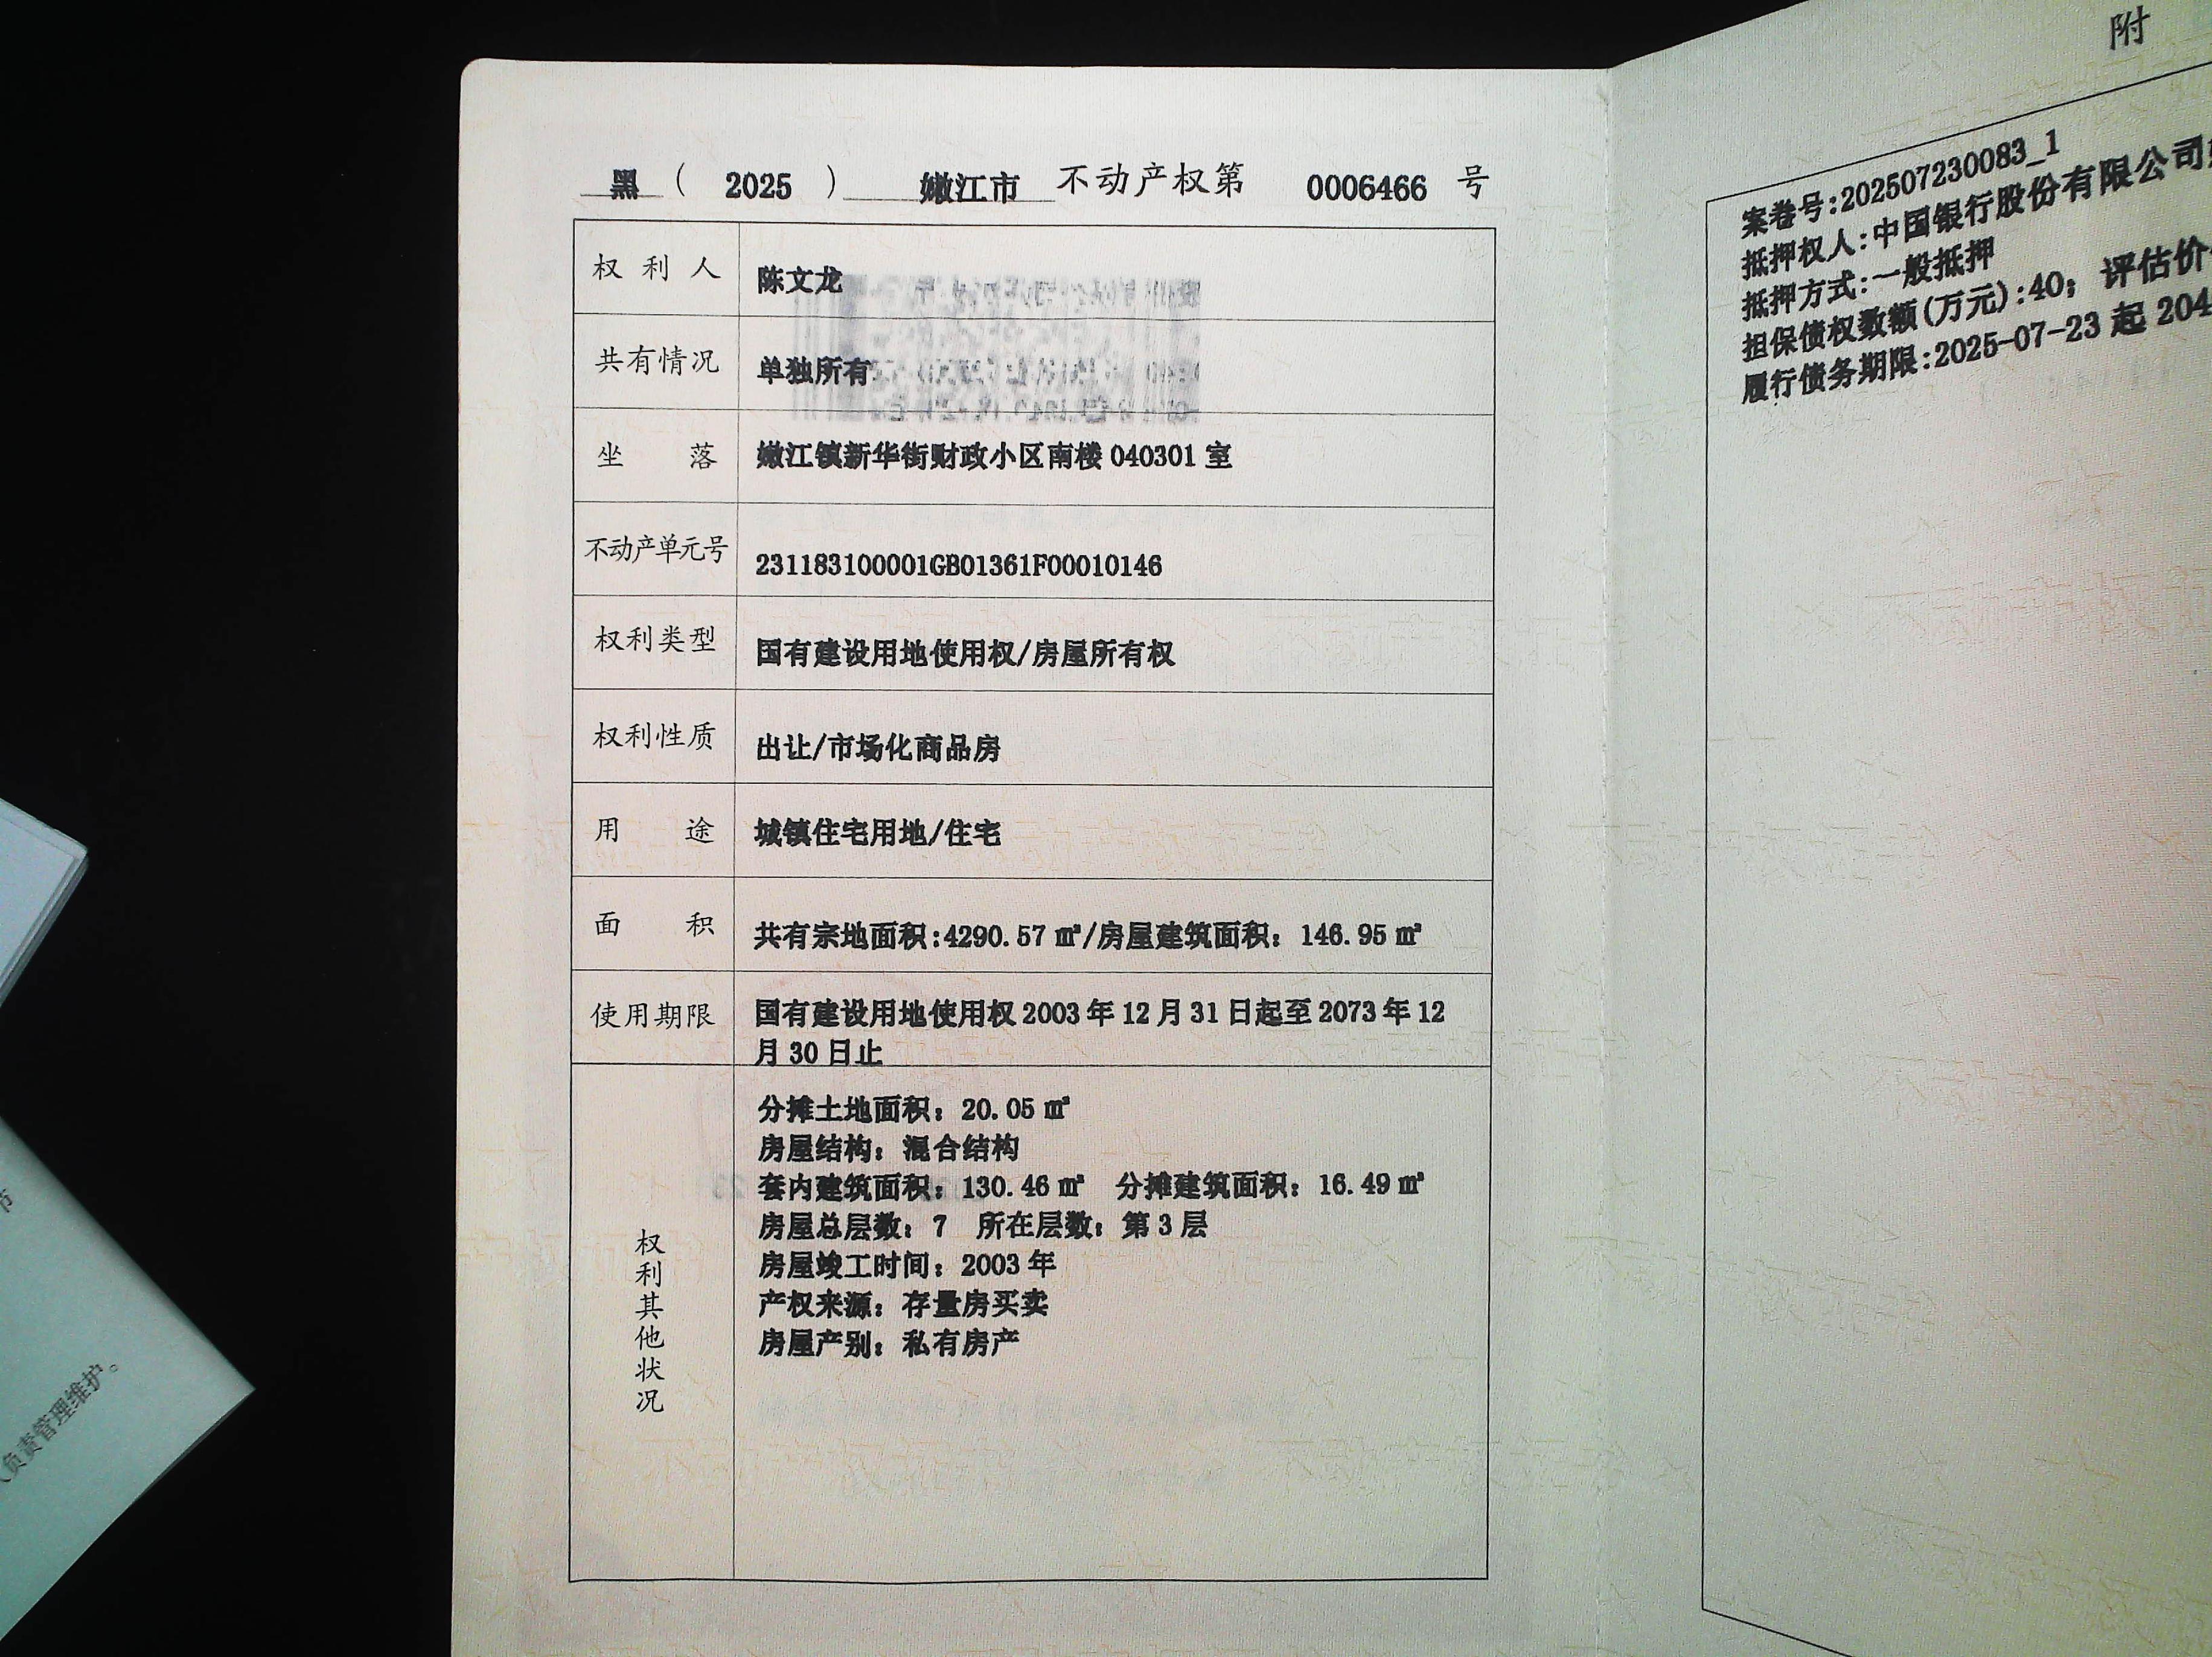 黑（2025）嫩江市不动产权第0006466号
权利人 陈文龙
共有情况 单独所有
坐落 嫩江镇新华街财政小区南楼040301室
不动产单元号 231183100001GB01361F00010146
权利类型 国有建设用地使用权/房屋所有权
权利性质 出让/市场化商品房
用途 城镇住宅用地/住宅
面积 共有宗地面积:4290.57㎡/房屋建筑面积：146.95㎡
使用期限 国有建设用地使用权2003年12月31日起至2073年12
月30日止
权利其他状况
分摊土地面积：20.05㎡
房屋结构：混合结构
套内建筑面积：130.46㎡ 分摊建筑面积：16.49㎡
房屋总层数：7 所在层数：第3层
房屋竣工时间：2003年
产权来源：存量房买卖
房屋产别：私有房产
附
案卷号:202507230083_1
抵押权人:中国银行股份有限公司
抵押方式:一般抵押
担保债权数额(万元):40；评估价
履行债务期限:2025-07-23起204
负责管理维护。